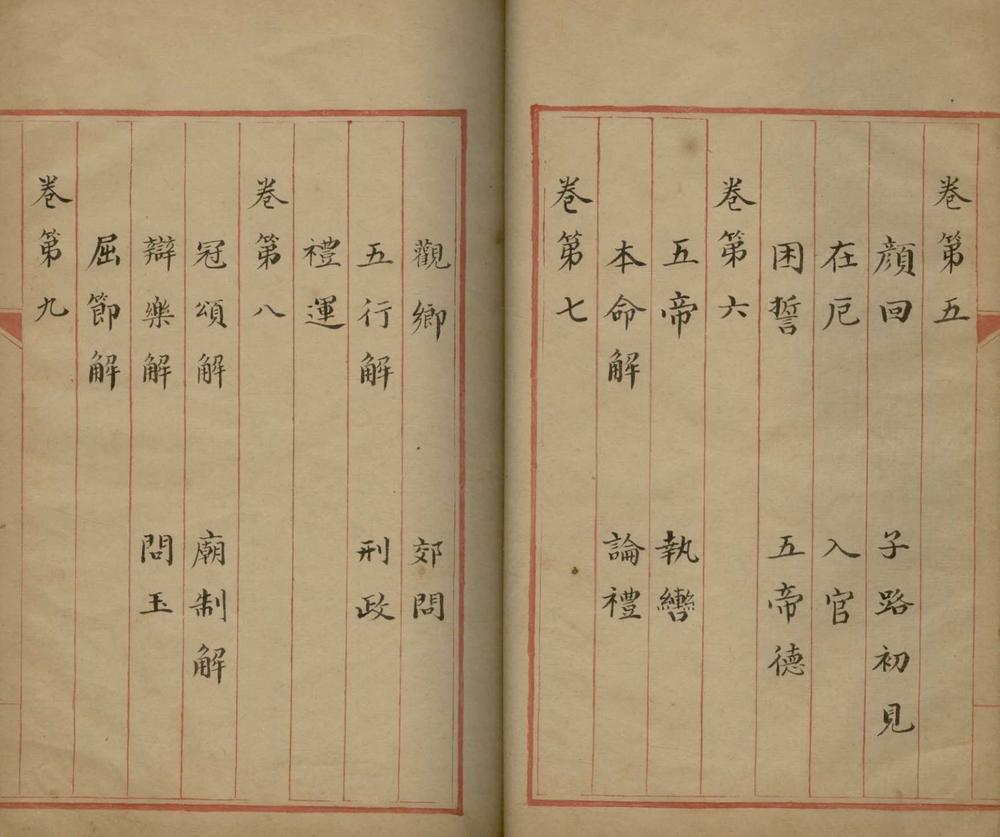 卷第五
顏回 子路初見
在厄 入官
困誓 五帝德
卷第六
五帝 執轡
本命解 論禮
卷第七
觀鄉 郊問
五行解 刑政
禮運
卷第八
冠頌解 廟制解
辯樂解 問玉
屈節解
卷第九